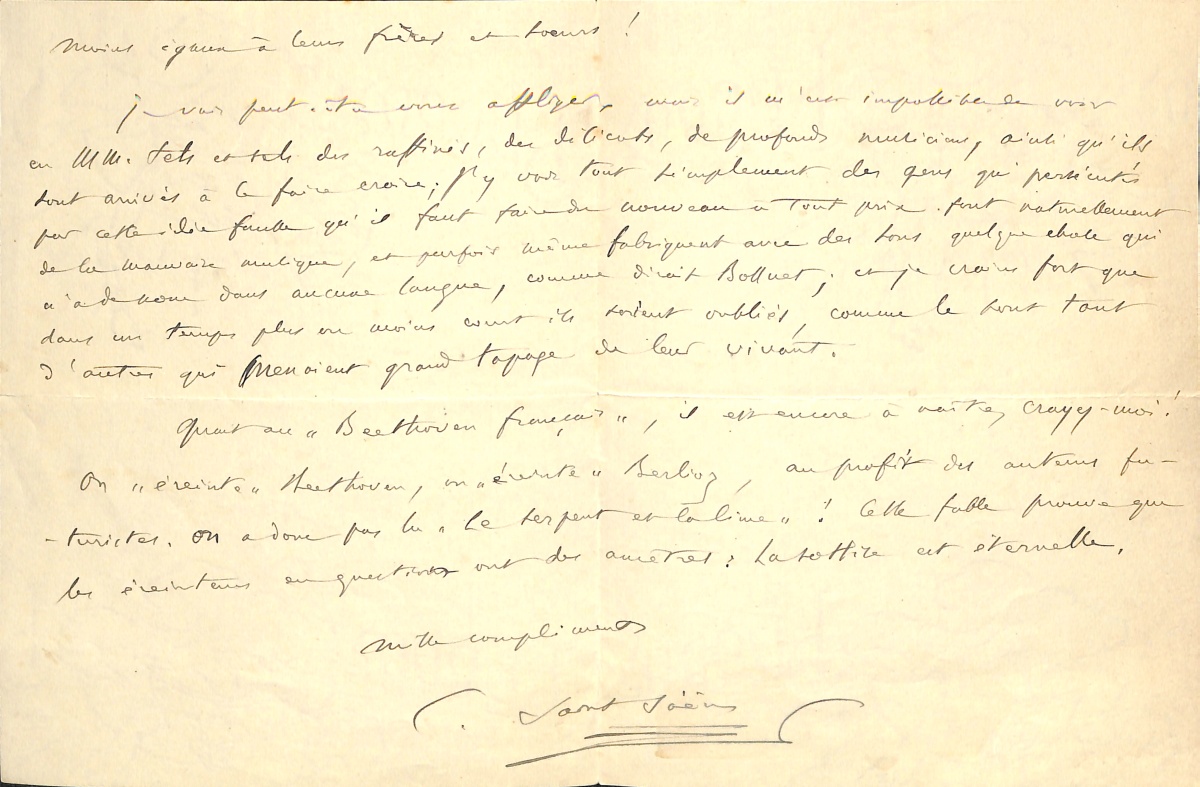 moins égaux à leurs frères et soeurs !
Je vais peut-être vous affliger, mais il m'est impossible de voir
en MM. tels et tels des raffinés, des délicats, de profonds musiciens, ainsi qu'ils
sont arrivés à le faire croire ; j'y vois tout simplement des gens qui persuadés
par cette idée fausse qu'il faut faire du nouveau à tout prix font naturellement
de la mauvaise musique, et parfois même fabriquent avec des sons quelque chose qui
n'a de nom dans aucune langue, comme disait Bossuet ; et je crains fort que
dans un temps plus ou moins court ils soient oubliés, comme le sont tant
d'autres qui menaient grand tapage de leur vivant.
Quant au " Beethoven français ", il est encore à naître, croyez-moi !
On " éreinte " Beethoven, on " éreinte " Berlioz, au profit des auteurs fu-
-turistes. On a donc pas lu " Le serpent et la lime " ! Cette fable prouve que
les éreinteurs en question ont des ancêtres ; la sottise est éternelle.
Mille compliments
C. Saint-Saëns